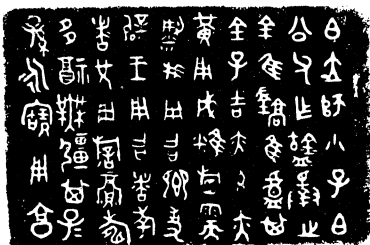 白大師小子白
公父作簠擇之
金隹鐈隹盧其
金孔吉亦玄亦
黃用成糕稻需
粱我用召卿事
辟王用召者考
者兄用旂眉壽
多福無疆其子
孫永寶用享